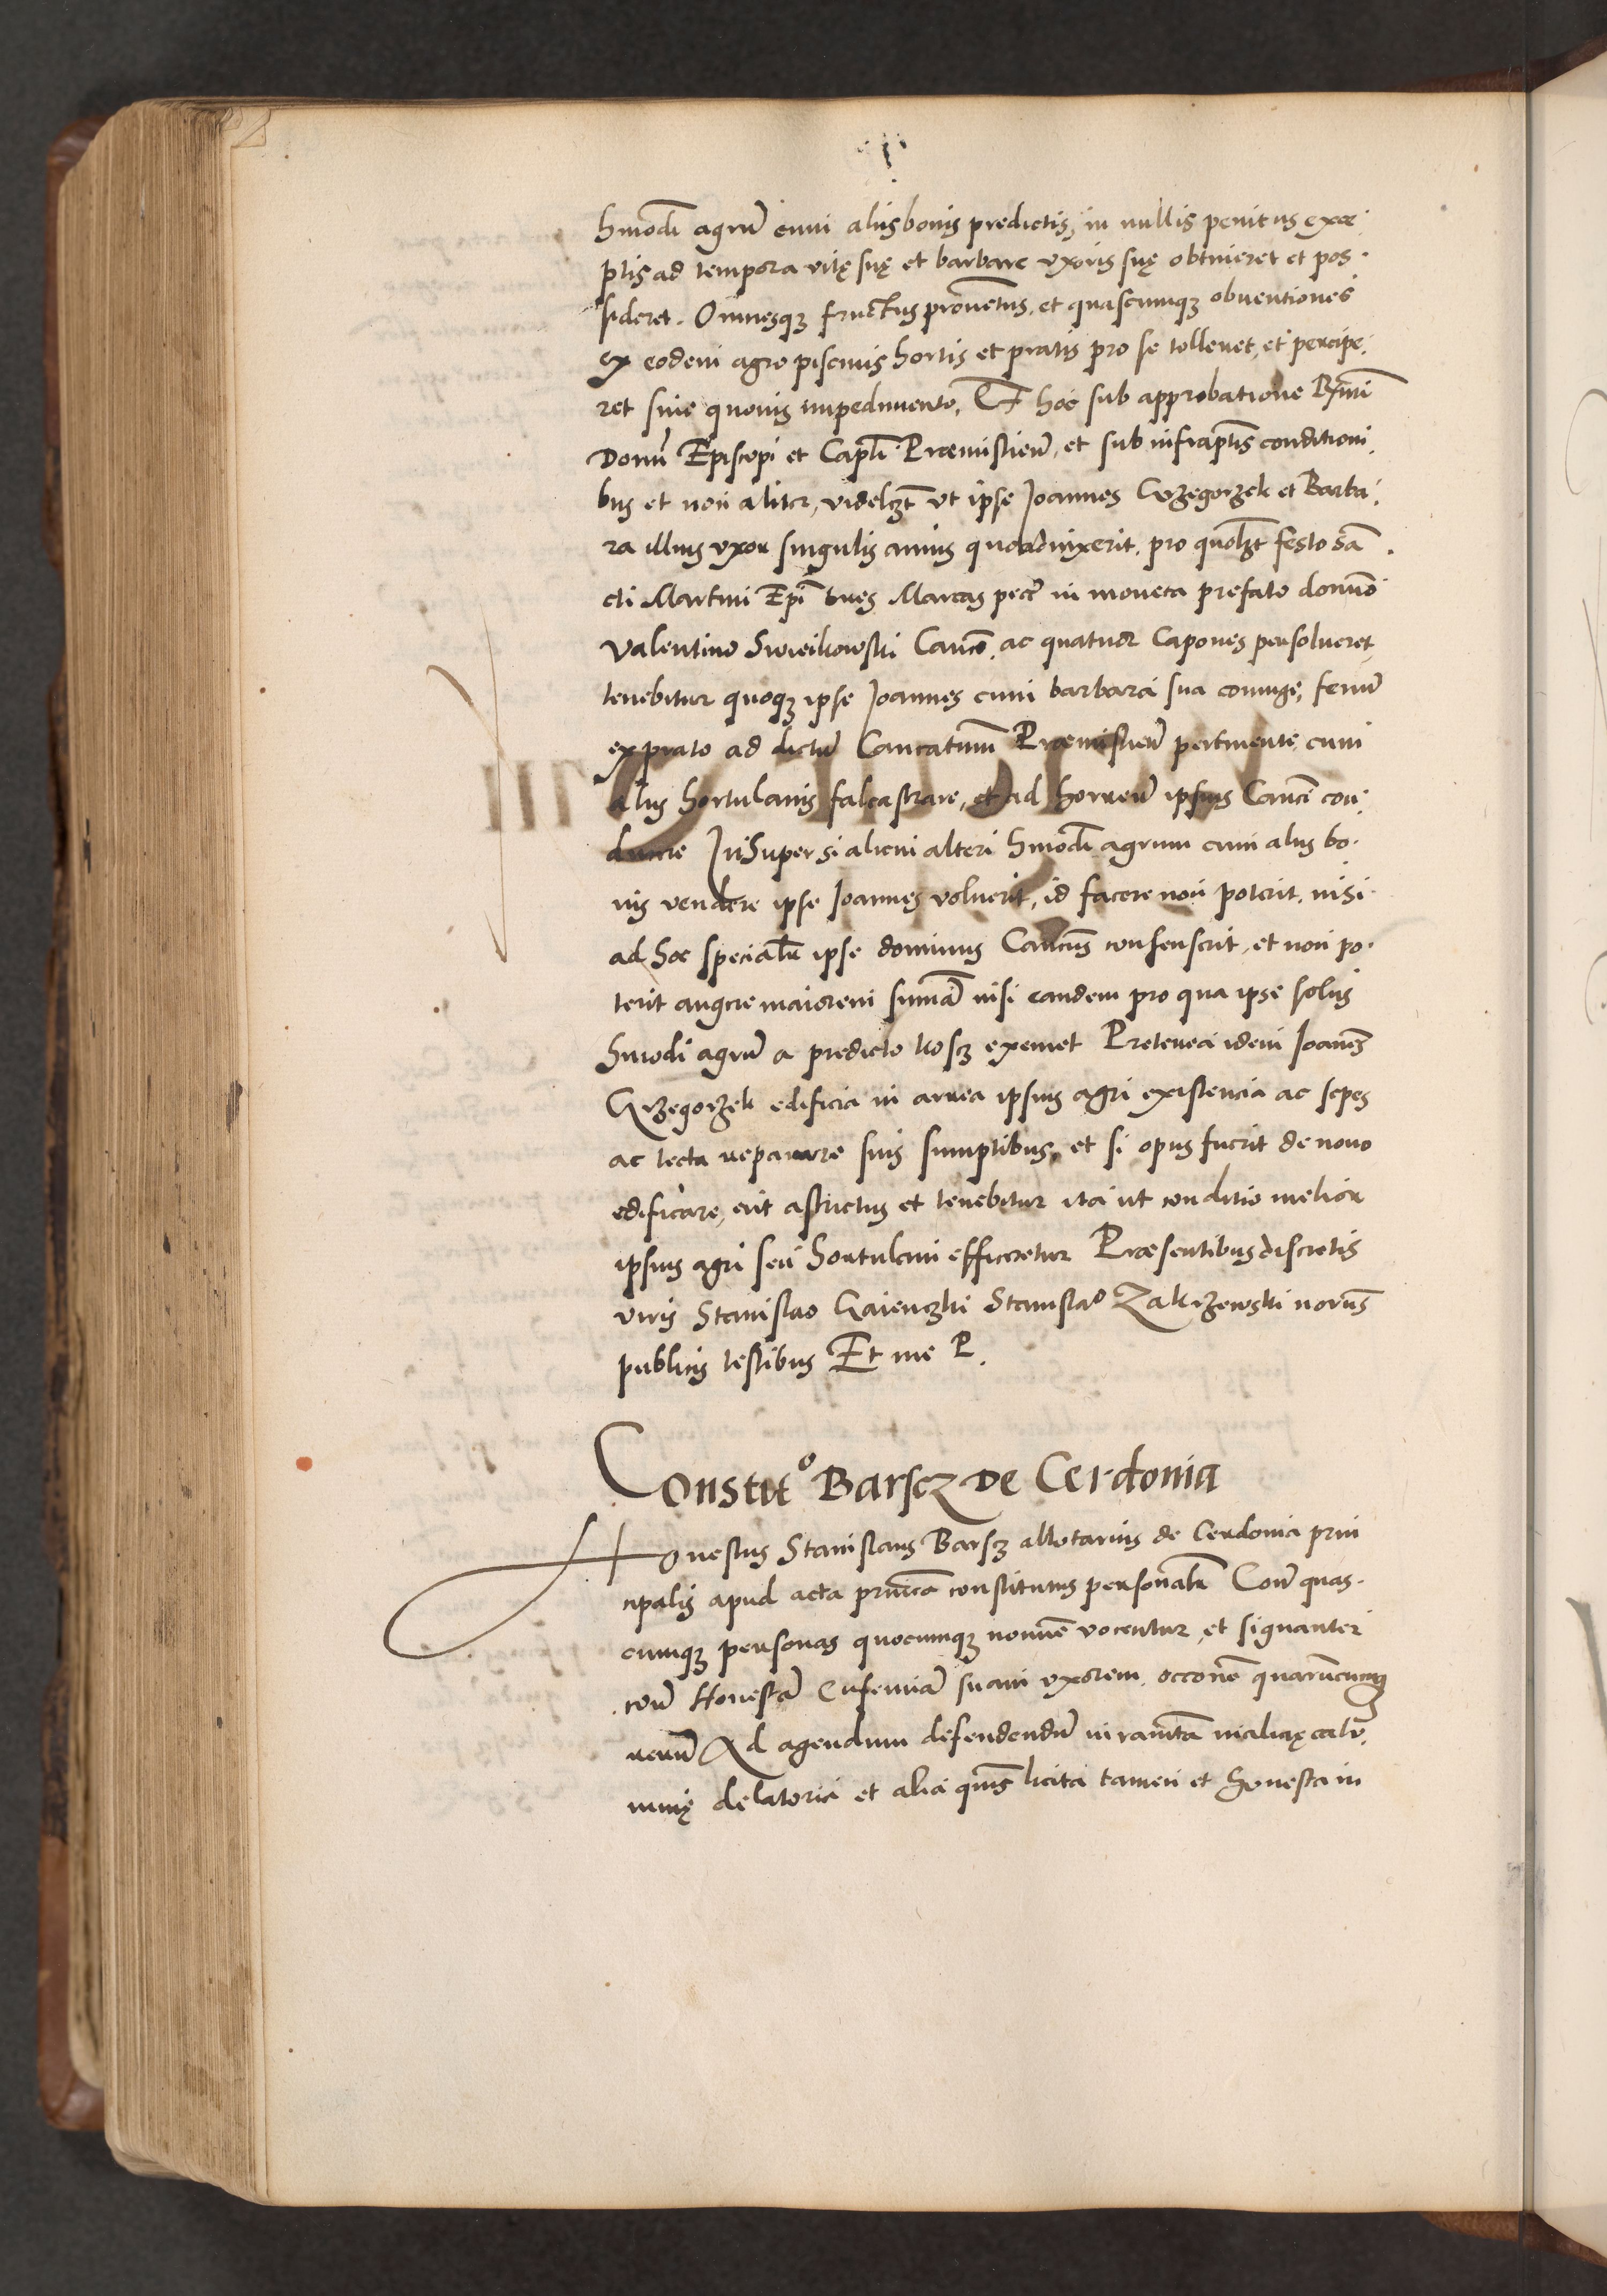 hmodi agrum cum aliis bonis predictis, in nullis penitus exce
ptis ad tempora vitę suę et barbare vxoris suę obtineret et pos
sideret. Omnesqȝ fructus proventus, et quascumqȝ obventiones
ex eodem agro piscinis hortis et pratis pro se tolleret, et percipe
ret sine quovis impedimento, Et hoc sub approbatione Rmi
Domi Episcopi et Capli Præmislien, et sub infraptis conditioni
bus et non aliter, videlȝt vt ipse Joannes Grzegorzek et Barba
ra illius vxor singulis annis quoad vixerit, pro quolȝt festo san
cti Martini Epi tres Marcas pecc in moneta prefato domino
Valentino Swieikowski Canco, ac quatuor Capones persolveret,
tenebitur quoqȝ ipse Joannes cum barbara sua coniuge, fenum
ex prato ad dictum Cancatum Præmislien pertinente, cum
aliis hortulanis falcastrare, et ad horreum ipsius Canci con
ducere InSuper si alicui alteri hmodi agrum cum aliis bo
nis vendere ipse Joannes voluerit, id facere non poterit, nisi
ad hoc specialr ipse dominus Cancus consenserit, et non po
terit augere maiorem summa nisi eandem pro qua ipse solus
hmodi agrum a predicto kosȝ exemet Preterea idem Joannes
Grzegorzek edificia in area ipsius agri existencia ac sepes
ac tecta reparare suis sumptibus, et si opus fuerit de novo
edificare, erit astrictus et tenebitur ita ut conditio melior
ipsius agri seu hortulani efficeretur Præsentibus discretis
viris Stanislao Gaienczki Stanislao Zakrzewski noriis
publicis testibus Et me P.
Constito Barscz De Cerdonia
Honestus Stanislaus Barsȝ allotarius de Cerdonia prin
cipalis apud acta pnica constitutus personalr Contra quas
cumqȝ personas quocumqȝ nomine vocentur, et signanter
contra Honestam Eufemiam suam vxorem, occone quarumcumqȝ
rerum Ad agendum defendendum iuramta malicię calu
mnię delatoria et alia quevis licita tamen et honesta in